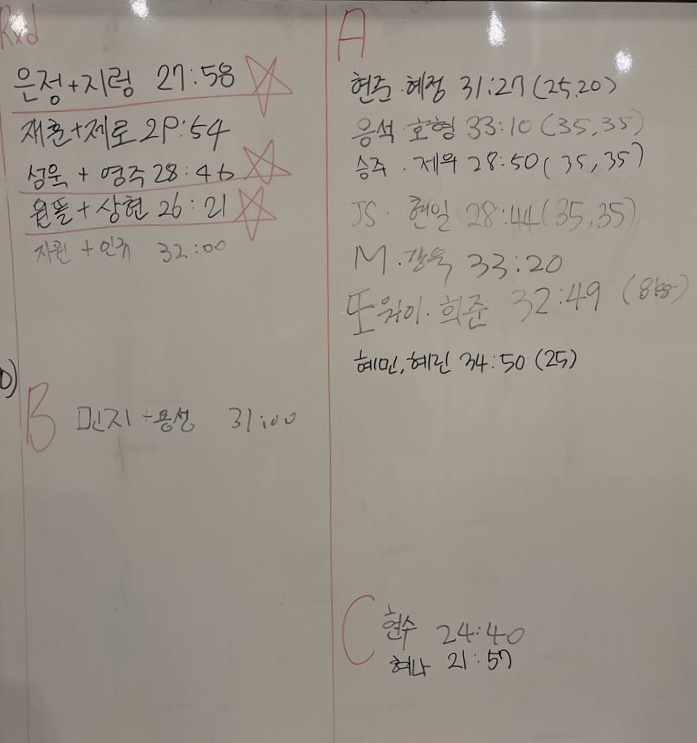 Rxd
은정+지령 27:58
재훈+제로 29:54
성욱 + 영주 28:46
월뚤 + 상현 26:21
지원 + 민규 32:00
B 민지 + 용성 31:00
A
현준·혜정 31:27 (25,20)
응석·호형 33:10 (35,35)
승주·제우 28:50 (35,35)
JS·현일 28:44 (35,35)
M· 33:20
희준 32:49
혜민,혜린 34:50 (25)
C 현수 24:40
혜나 21:57